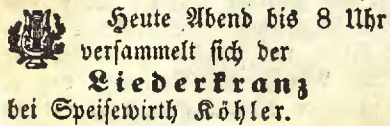 Heute Abend bis 8 Uhr
versammelt sich der
Liederkranz
bei Speisewirth Köhler.